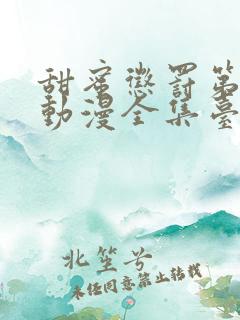 甜蜜懲罰第
動漫全集臺
北笙兮
未经同意禁止转载